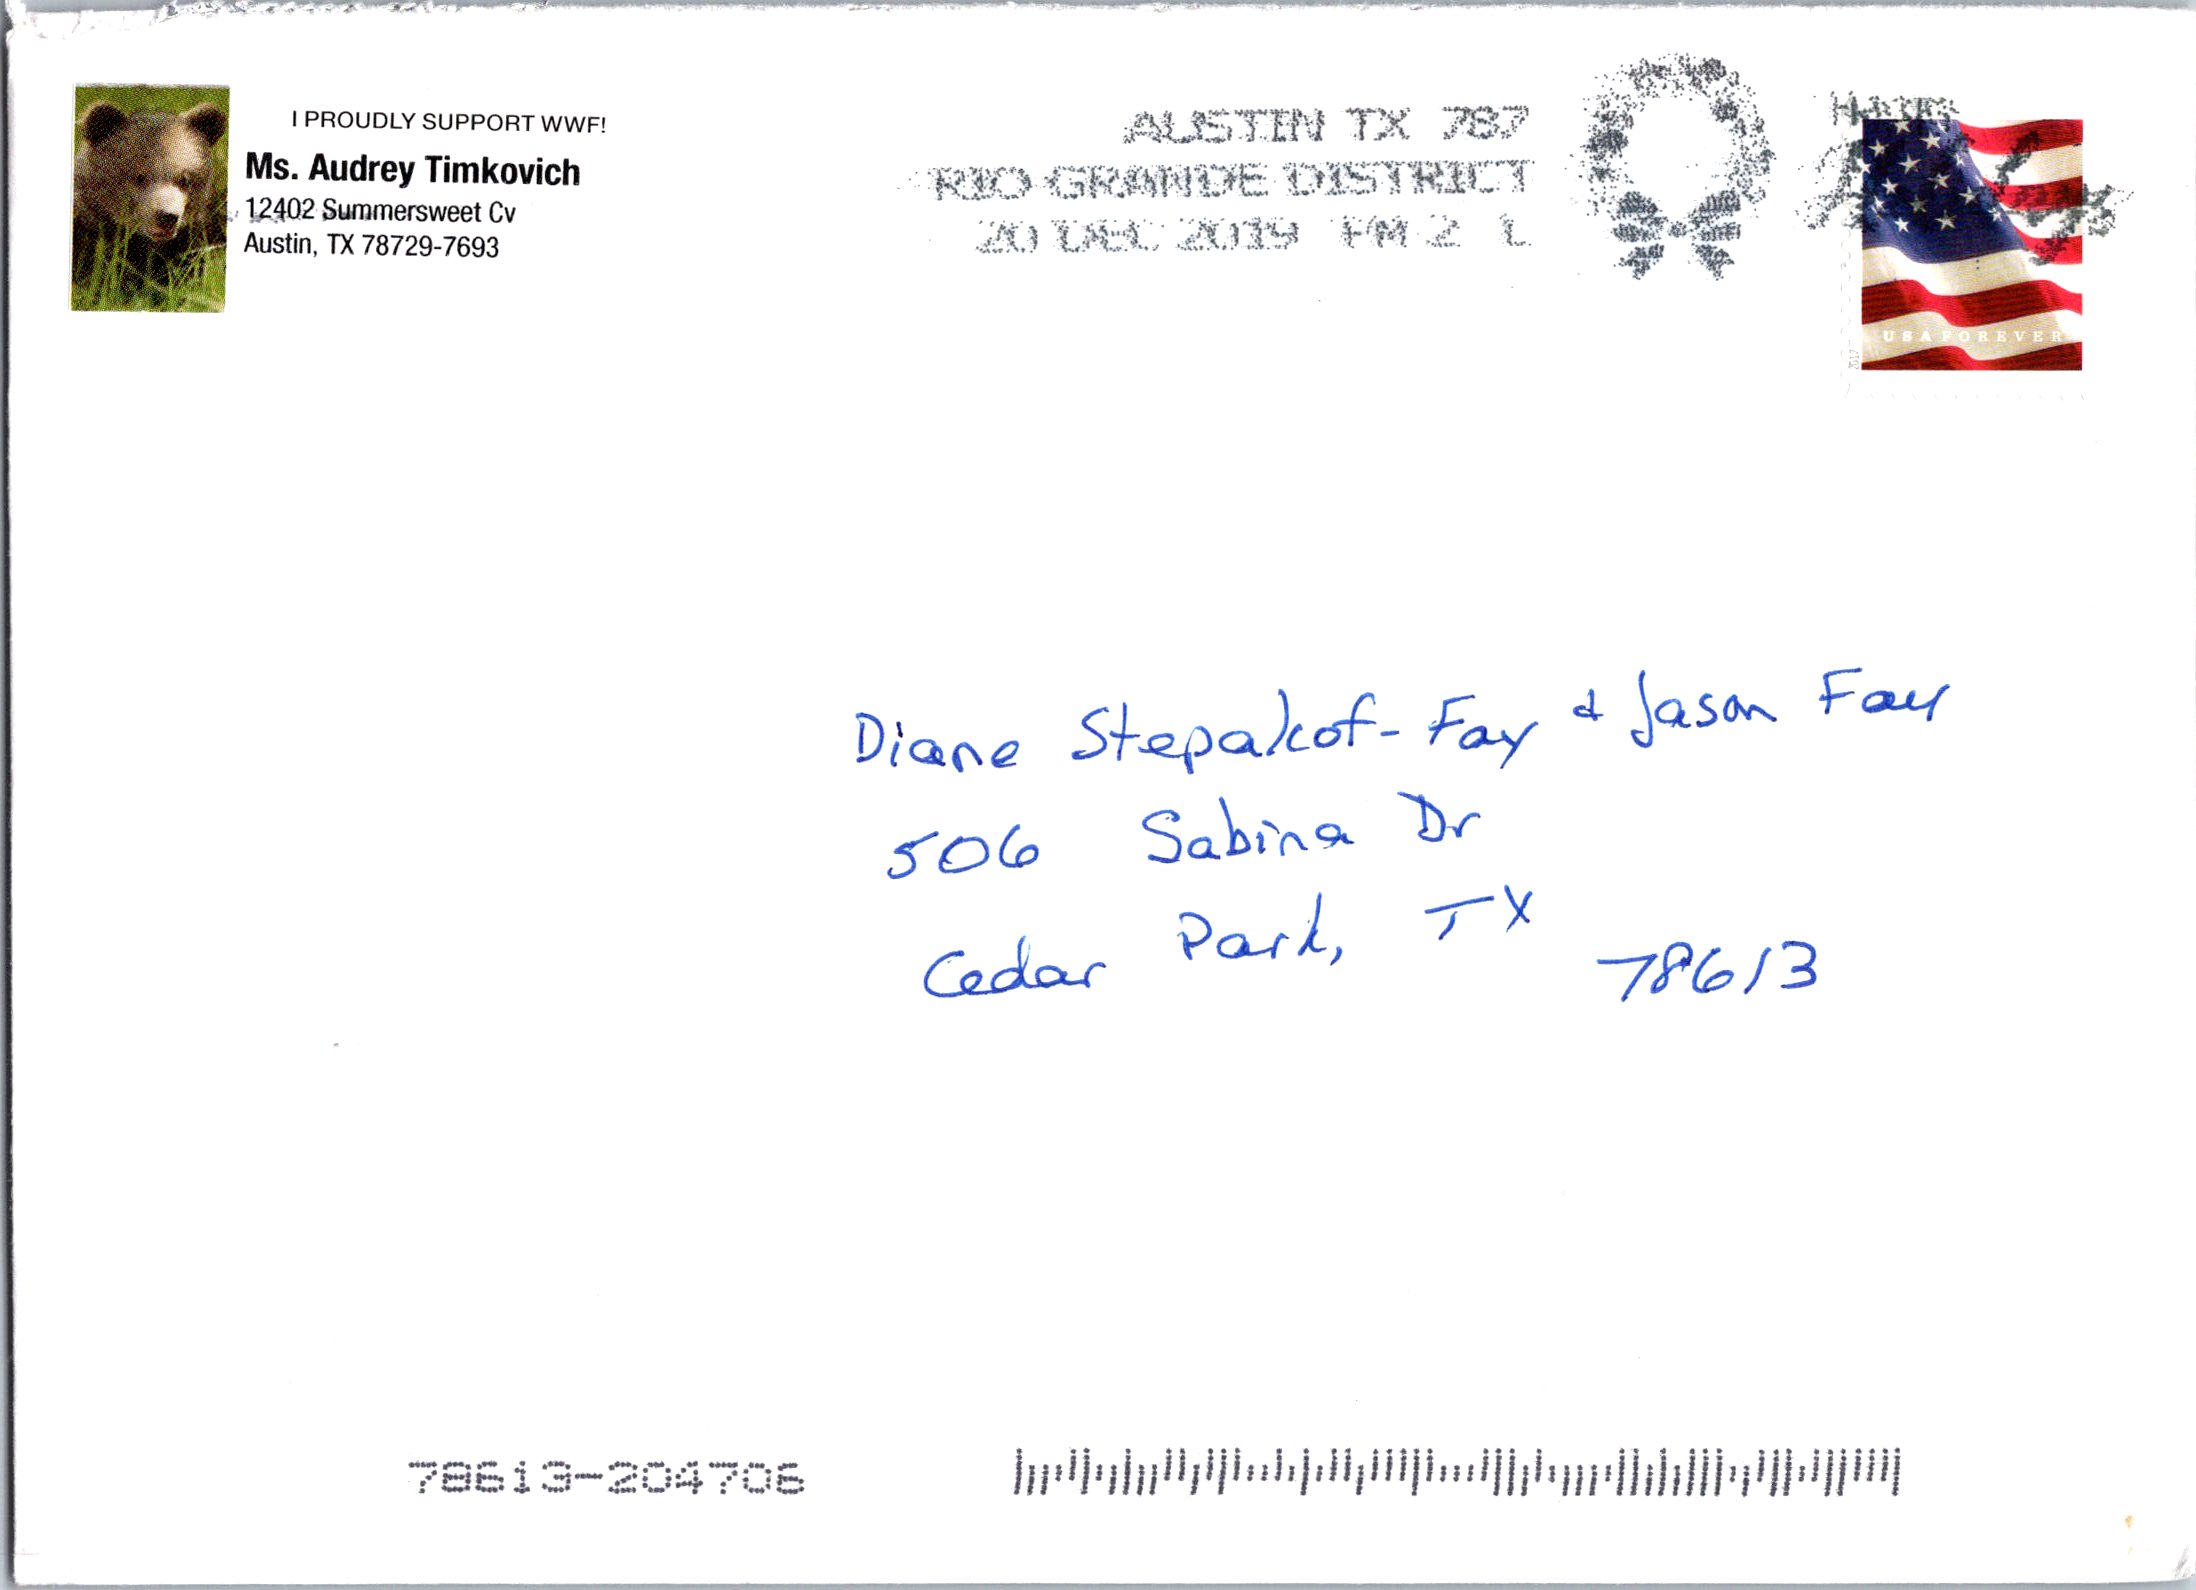 I PROUDLY SUPPORT WWF!
Ms. Audrey Timkovich
12402 Summersweet Cv
Austin, TX 78729-7693
AUSTIN TX 787
RIO GRANDE DISTRICT
20 DEC 2019 PM 2 L
USA FOREVER
2017
Diane Stepakof-Fay & Jason Fay
506 Sabina Dr
Cedar Park, TX
78613
78613-204706